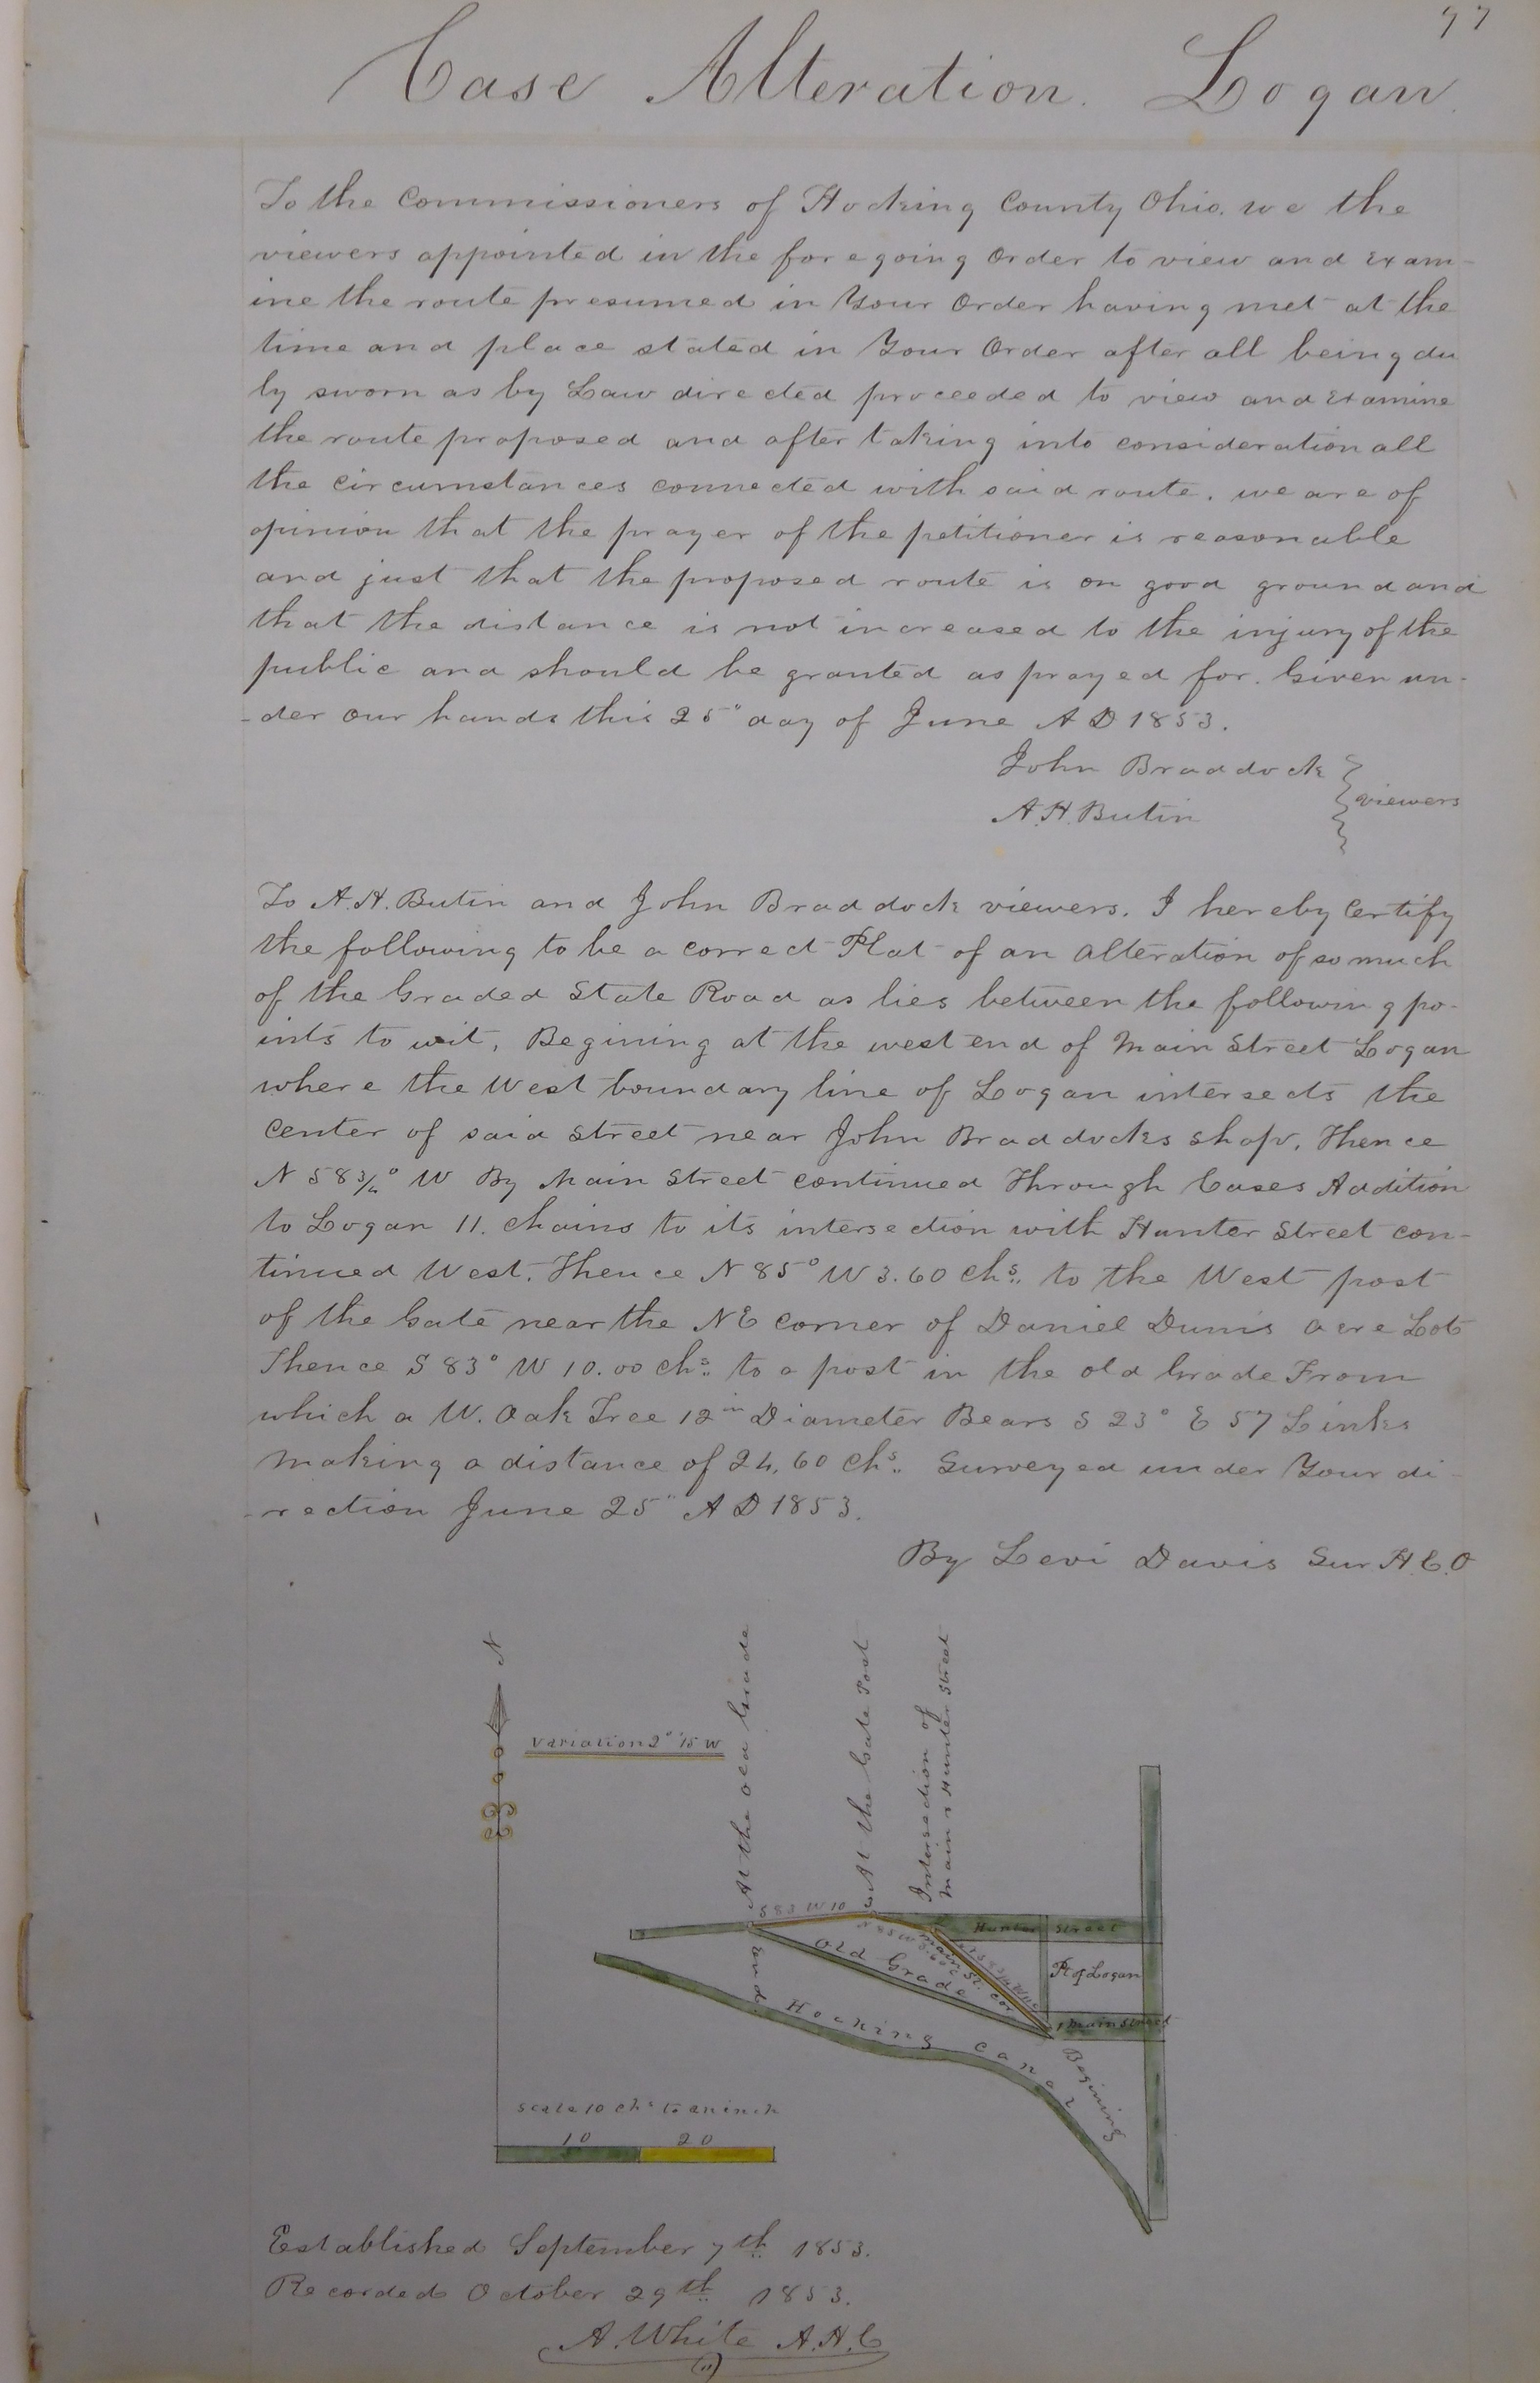 97
Case Alteration. Logan.
To the Commissioners of Hocking County Ohio. we the
viewers appointed in the foregoing Order to view and Exam-
ine the route presumed in Your Order having met at the
time and place stated in Your Order after all being du
ly sworn as by Law directed proceeded to view and Examine
the route proposed and after taking into consideration all
the Circumstances connected with said route. we are of
opinion that the prayer of the petitioner is reasonable
and just that the proposed route is on good ground and
that the distance is not increased to the injury of the
public and should be granted as prayed for. Given un-
-der our hands this 25" day of June A D 1853.
John Braddock
A. H. Butin
viewers
To A. H. Butin and John Braddock viewers. I hereby Certify
the following to be a correct Plat of an alteration of so much
of the Graded State Road as lies between the following po-
ints to wit, Begining at the west end of Main Street Logan
where the West boundary line of Logan intersects the
Center of said Street near John Braddocks Shop. Thence
N 58 3/4° W By Main Street continued Through Cases Addition
to Logan 11. Chains to its intersection with Hunter Street con-
tinued West. Thence N 85° W 3.60 Chs. to the West post
of the Gate near the NE Corner of Daniel Dunis acre Lot
Thence S 83° W 10.00 chs. to a post in the old Grade From
which a W. Oak Tree 12 in Diameter Bears S 23° E 57 Links
Making a distance of 24,60 Chs. Surveyed under Your di-
-rection June 25" A D 1853.
By Levi Davis Sur. H. C. O
N
Variation 2° 15 W
At the old Grade
At the Gate Post
Intersection of
Main & Hunter Street
S 83 W 10
N 85 W 3.60
Hunter Street
Main St. con
Old Grade
Pt of Logan
Main Street
End.
Hocking Canal
Begining
Scale 10 chs to an inch
10 20
Established September 7th 1853.
Recorded October 29th 1853.
A. White A. H. C